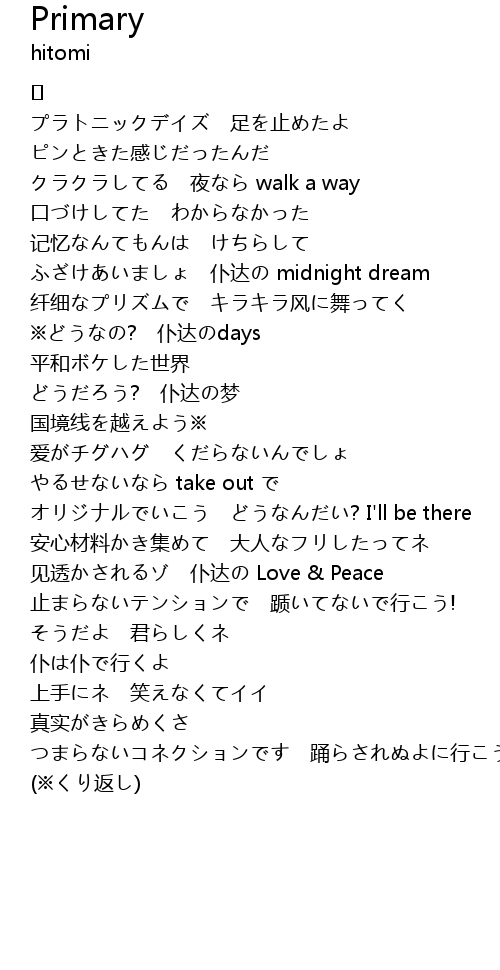 Primary
hitomi
プラトニックデイズ　足を止めたよ
ピンときた感じだったんだ
クラクラしてる　夜なら walk a way
口づけしてた　わからなかった
记忆なんてもんは　けちらして
ふざけあいましょ　仆达の midnight dream
纤细なプリズムで　キラキラ风に舞ってく
※どうなの?　仆达のdays
平和ボケした世界
どうだろう?　仆达の梦
国境线を越えよう※
爱がチグハグ　くだらないんでしょ
やるせないなら take out で
オリジナルでいこう　どうなんだい? I'll be there
安心材料かき集めて　大人なフリしたってネ
见透かされるゾ　仆达の Love & Peace
止まらないテンションで　踬いてないで行こう!
そうだよ　君らしくネ
仆は仆で行くよ
上手にネ　笑えなくてイイ
真实がきらめくさ
つまらないコネクションです　踊らされぬよに行こう
(※くり返し)